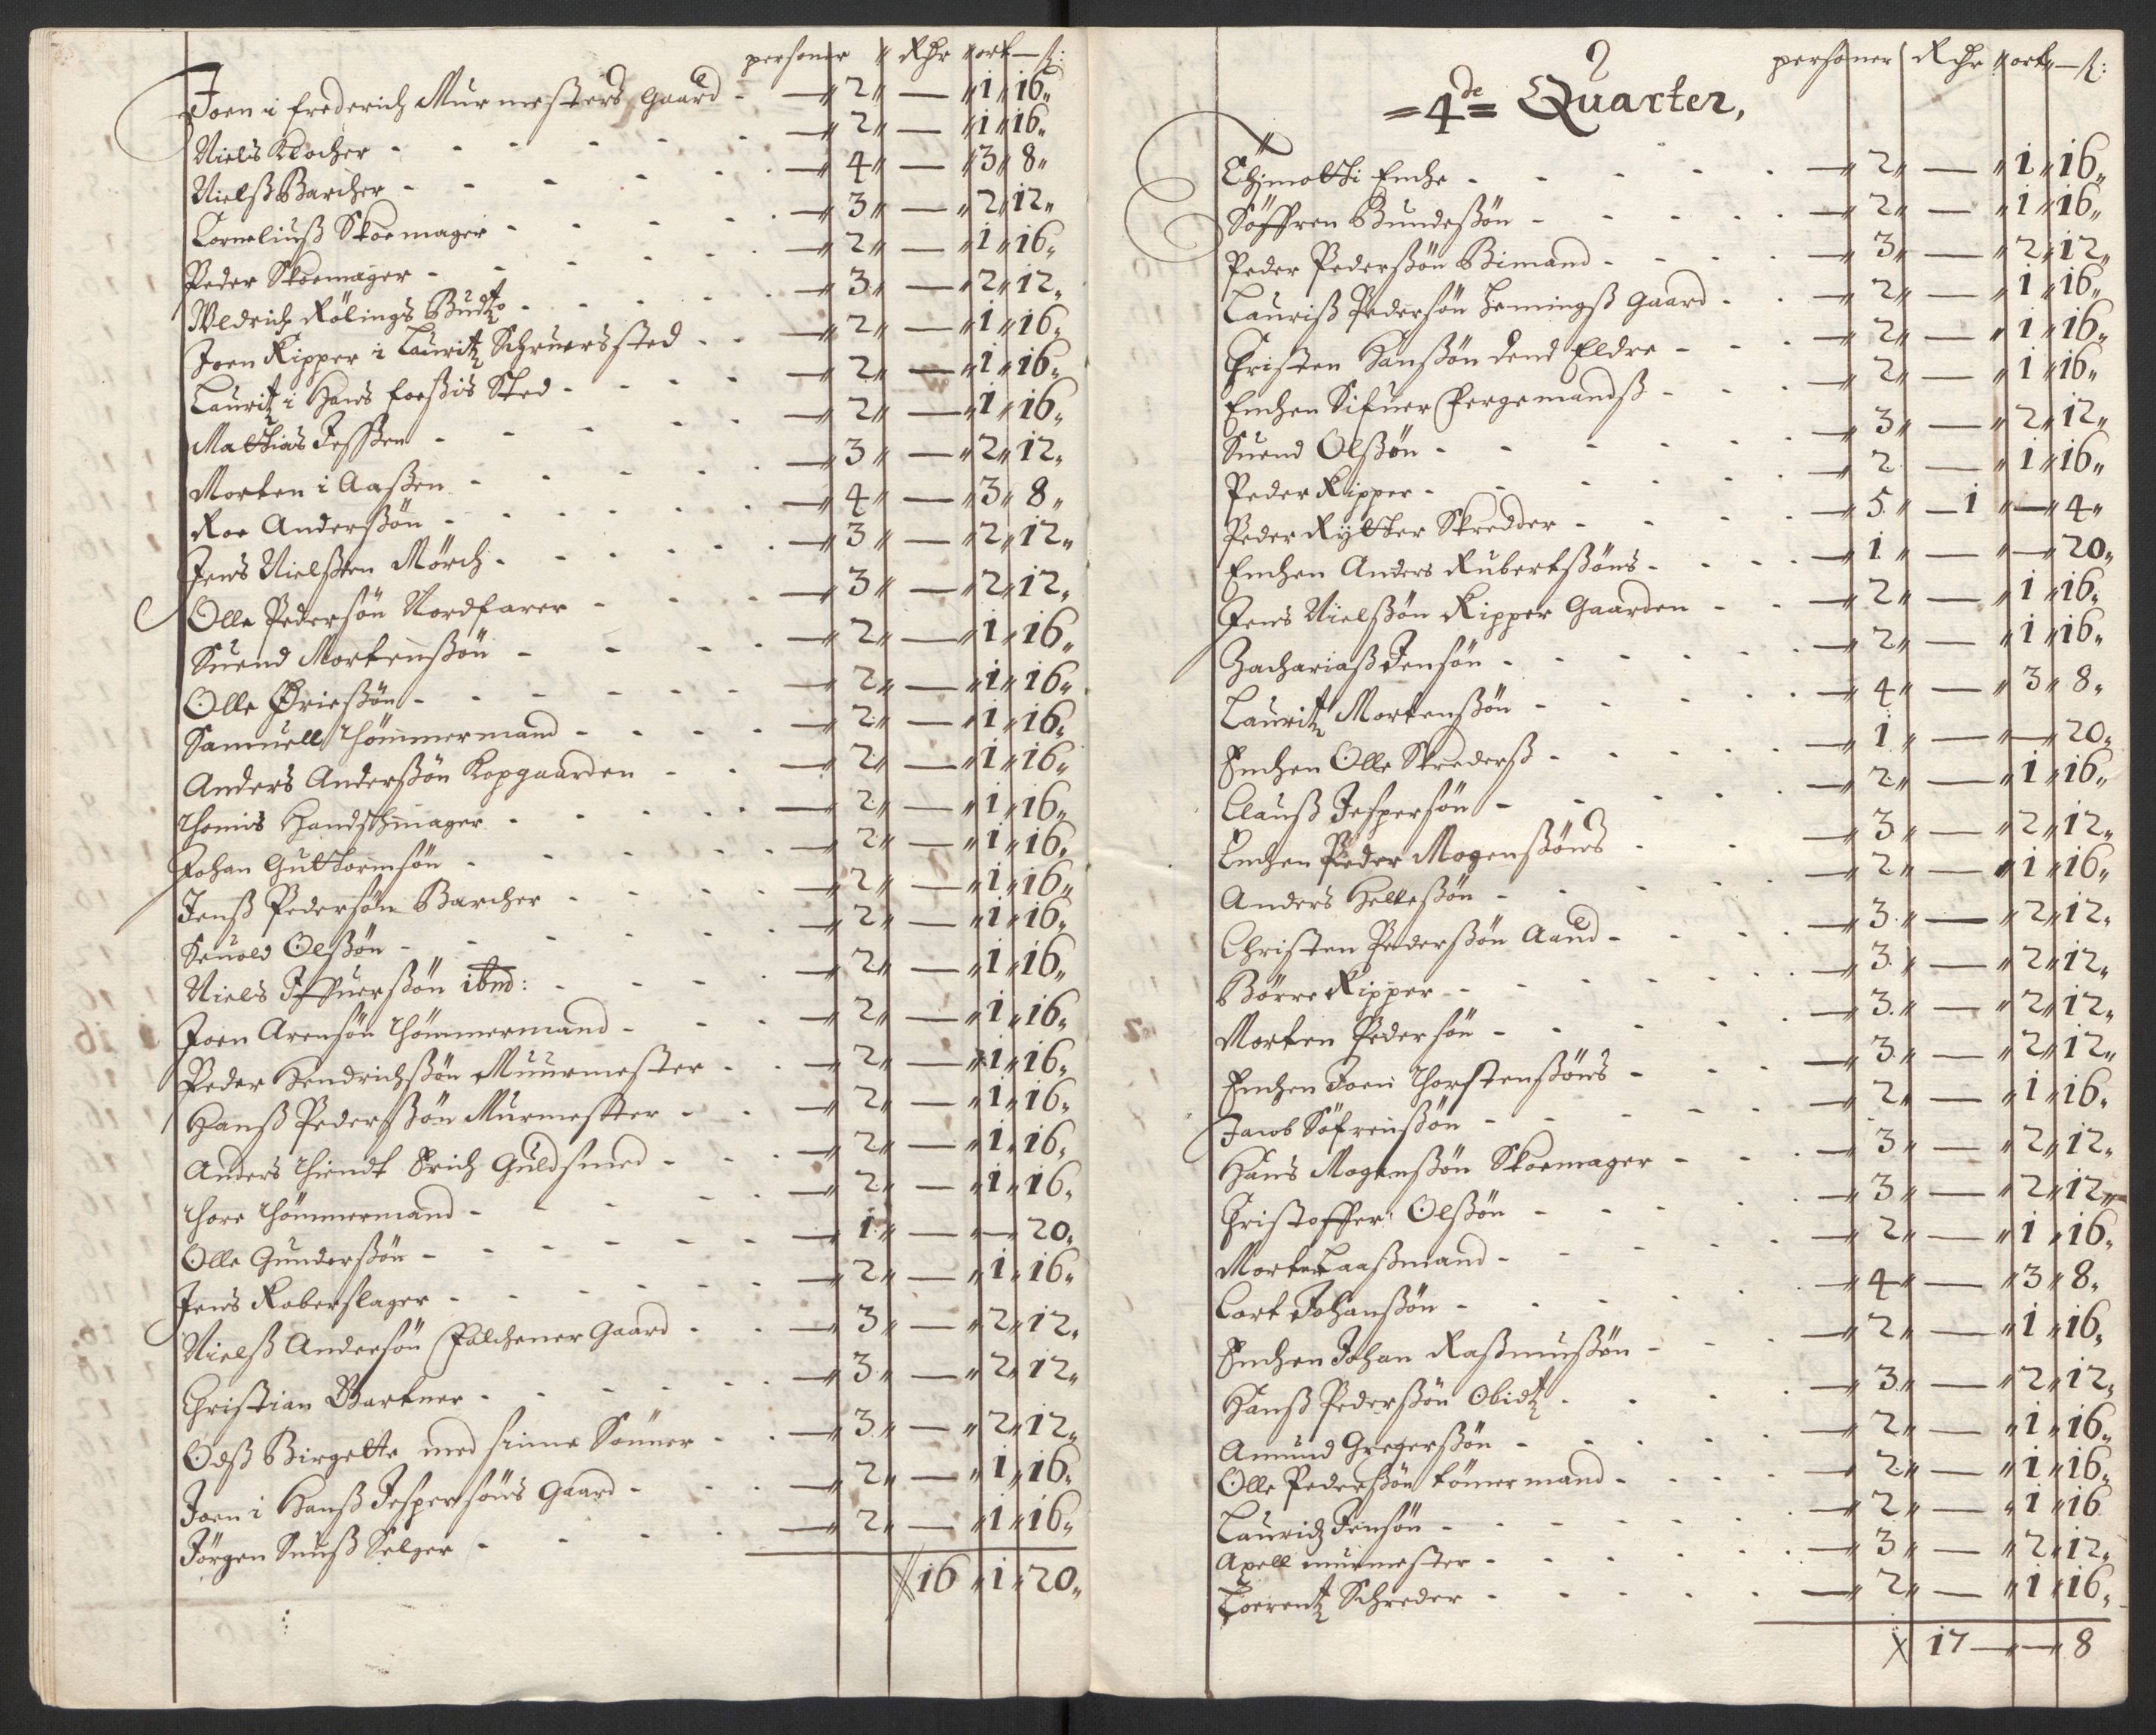 personer Rdr ort ß:
Joen i frederich Murmesters Gaard - 2 — 1 16
Niels Klocher - 2 — 1 16
Nielß Barcher - 4 — 3 8
Corneliuß Skoemager - 3 — 2 12
Peder Skoemager - 2 — 1 16
Wldrich Rölings Budtz - 3 — 2 12
Joen Kipper i Lauritz Schruers sted - 2 — 1 16
Lauritz i Hans foeßis Sted - 2 — 1 16
Matthias Jeßsen - 2 — 1 16
Morten i Aaßen - 3 — 2 12
Roe Anderßön - 4 — 3 8
Jens Nielßen Mörch - 3 — 2 12
Olle Pedersön Nordfarer - 3 — 2 12
Suend Mortenßön - 2 — 1 16
Olle Ørießön - 2 — 1 16
Samuell Thömmermand - 2 — 1 16
Anders Anderßön Kopgaarden - 2 — 1 16
Thomis Handschmager - 2 — 1 16
Johan Guttormsön - 2 — 1 16
Jenß Pedersön Barcher - 2 — 1 16
Seuold Olßön - 2 — 1 16
Niels Iffuerßön ibid: - 2 — 1 16
Joen Arensön Thömmermand - 2 — 1 16
Peder Hendrichßön Muurmester - 2 — 1 16
Hanß Pederßön Murmester - 2 — 1 16
Anders Thiendt Erich Guldsmed - 2 — 1 16
Thore Thömmermand - 2 — 1 16
Olle Gunderßön - 1 — — 20
Jens Koberslager - 2 — 1 16
Nielß Andersön Falchener Gaard - 3 — 2 12
Christian Gartner - 3 — 2 12
Odß Birgette med sinne Sönner - 3 — 2 12
Joen i Hanß Jespersöns Gaard - 2 — 1 16
Jörgen Snuß Selger - 2 — 1 16
16 1 20
personer Rdr ort ß:
=4de= Quarter,
Thimotthi Enche - 2 — 1 16
Söffren Bundeßön - 2 — 1 16
Peder Pederßön Bimand - 3 — 2 12
Lauriß Pedersön Hemingß Gaard - 2 — 1 16
Christen Hanßön dend Eldre - 2 — 1 16
Enchen Sifuer Fergemandß - 2 — 1 16
Suend Olßön - 3 — 2 12
Peder Kipper - 2 — 1 16
Peder Rytter Skredder - 5 1 — 4
Enchen Anders Rubertßöns - 1 — — 20
Jens Nielßön Kipper Gaarden - 2 — 1 16
Zachariaß Jensön - 2 — 1 16
Lauritz Mortenßön - 4 — 3 8
Enchen Olle Skrederß - 1 — — 20
Clauß Jespersön - 2 — 1 16
Enchen Peder Mogenßöns - 3 — 2 12
Anders Helleßön - 2 — 1 16
Christen Pederßön Aaed - 3 — 2 12
Börre Kipper - 3 — 2 12
Morten Pedersön - 3 — 2 12
Enchen Joen Thorstenßöns - 3 — 2 12
Jacob Söfrenßön - 2 — 1 16
Hans Mogenßön Skoemager - 3 — 2 12
Christoffer Olßön - 3 — 2 12
Morten Laaßmand - 2 — 1 16
Cort Johanßön - 4 — 3 8
Enchen Johan Raßmußön - 2 — 1 16
Hanß Pederßön Obidtz - 3 — 2 12
Amund Gregerßön - 2 — 1 16
Olle Pederßön tömermand - 2 — 1 16
Lauridz Jensön - 2 — 1 16
Axell murmester - 3 — 2 12
Loerentz Schreder - 2 — 1 16
17 — — 8